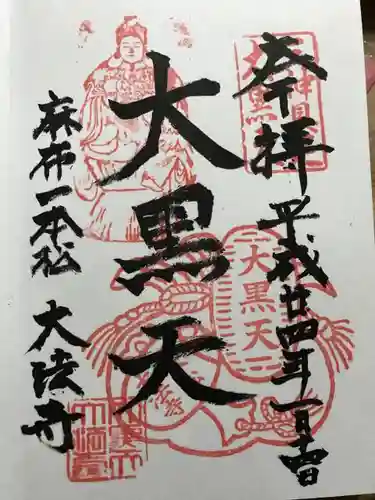 奉拝
平成廿四年一月
大黒天
大黒天
麻布一本松
大法寺